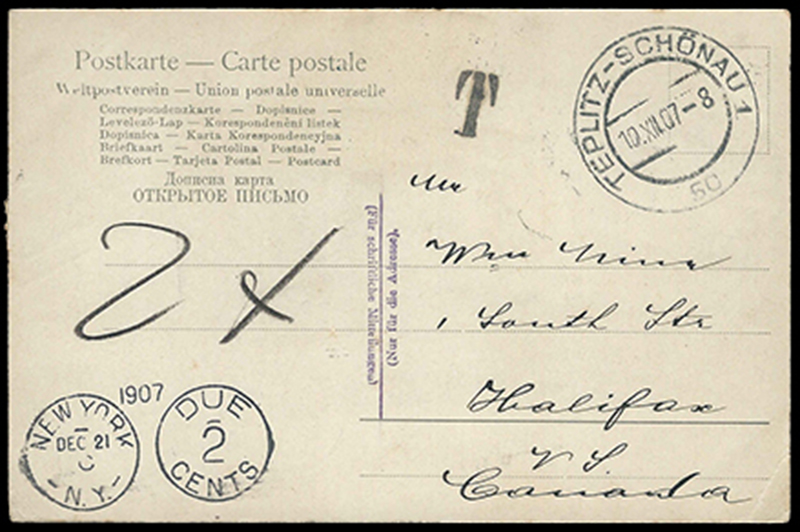 Postkarte — Carte postale
Weltpostverein — Union postale universelle
Correspondenzkarte — Dopisnice —
Levelező-Lap — Korespondenční lístek
Dopisnica — Karta Korespondencyjna
Briefkaart — Cartolina Postale —
Brefkort — Tarjeta Postal — Postcard
Дописна карта
ОТКРЫТОЕ ПИСЬМО
T
TEPLITZ-SCHÖNAU 1
10.XII.07-8
5c
(Für schriftliche Mitteilungen)
(Nur für die Adresse).
Mr
Wm
1 South Str
Halifax
N S
Canada
2 x
NEW YORK
DEC 21
N.Y.
1907
DUE
2
CENTS